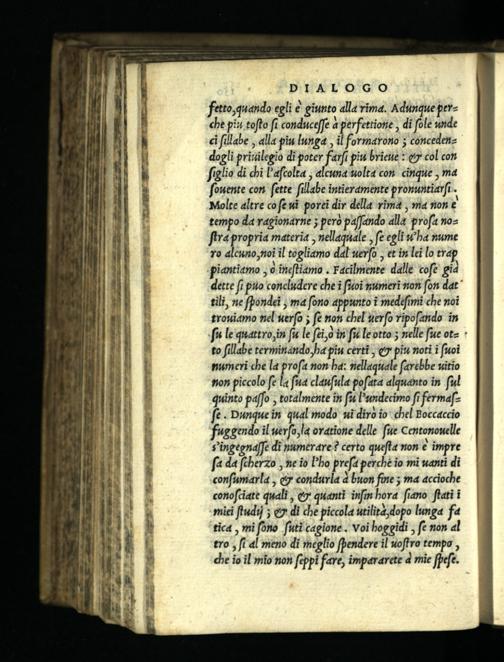 DIALOGO
fetto, quando egli è giunto alla rima. Adunque per=
che piu tosto si conducesse à perfettione, di sole unde
ci sillabe, alla piu lunga, il formarono; conceden=
dogli priuilegio di poter farsi piu brieue: & col con
siglio di chi l'ascolta, alcuna uolta con cinque, ma
souente con sette sillabe intieramente pronuntiarsi.
Molte altre cose ui porei dir della rima, ma non è
tempo da ragionarne; però passando alla prosa no=
stra propria materia, nellaquale, se egli u'ha nume
ro alcuno, noi il togliamo dal uerso, et in lei lo trap
piantiamo, ò inestiamo. Facilmente dalle cose già
dette si puo concludere che i suoi numeri non son dat
tili, ne spondei, ma sono appunto i medesimi che noi
trouiamo nel uerso; se non chel uerso riposando in
su le quattro, in su le sei, ò in su le otto; nelle sue ot=
to sillabe terminando, ha piu certi, & piu noti i suoi
numeri che la prosa non ha: nellaquale sarebbe uitio
non piccolo se la sua clausula posata alquanto in sul
quinto passo, totalmente in su l'undecimo si fermas=
se. Dunque in qual modo ui dirò io chel Boccaccio
fuggendo il uerso, la oratione delle sue Centonouelle
s'ingegnasse di numerare? certo questa non è impre
sa da scherzo, ne io l'ho presa perche io mi uanti di
consumarla, & condurla à buon fine; ma accioche
conosciate quali, & quanti insin hora siano stati i
miei studij; & di che piccola utilità, dopo lunga fa
tica, mi sono suti cagione. Voi hoggidi, se non al
tro, si al meno di meglio spendere il uostro tempo,
che io il mio non seppi fare, impararete à mie spese.